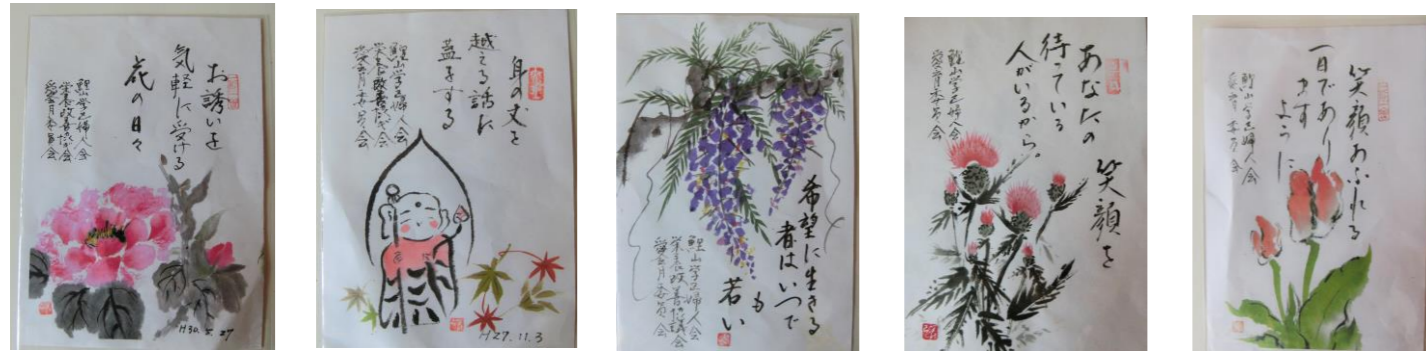 お誘いを
気軽に受ける
花の日々
鯉山学区婦人会
栄養改善協議会
愛育委員会
H30.5.27
身の丈を
越える話に
蓋をする
鯉山学区婦人会
栄養改善協議会
愛育委員会
H27.11.3
希望に生きる
者はいつで
も
若い
鯉山学区婦人会
栄養改善協議会
愛育委員会
あなたの
笑顔を
待っている
人がいるから。
鯉山学区婦人会
愛育委員会
笑顔あふれる
一日であり
ます
ように
鯉山学区婦人会
愛育委員会